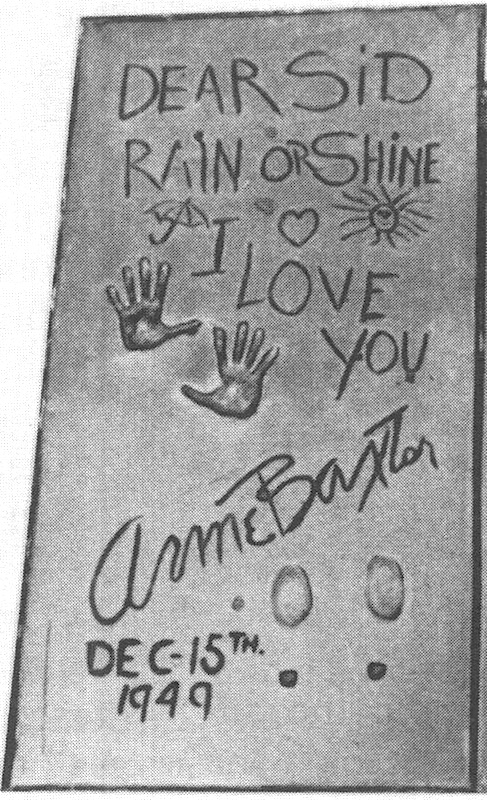 DEAR SiD
RAiN OR SHiNE
I LOVE
YOU
Anne Baxter
DEC-15TH.
1949